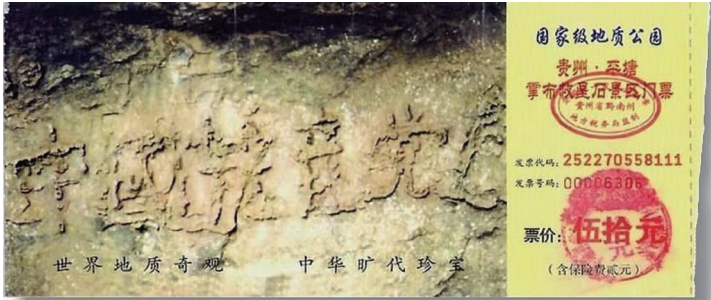 中国共产党亡
世界地质奇观 中华旷代珍宝
国家级地质公园
贵州·平塘
掌布救星石景区门票
贵州省黔南州
地方税务局监制
发票代码：252270558111
发票号码：00006306
票价：伍拾元
（含保险费贰元）